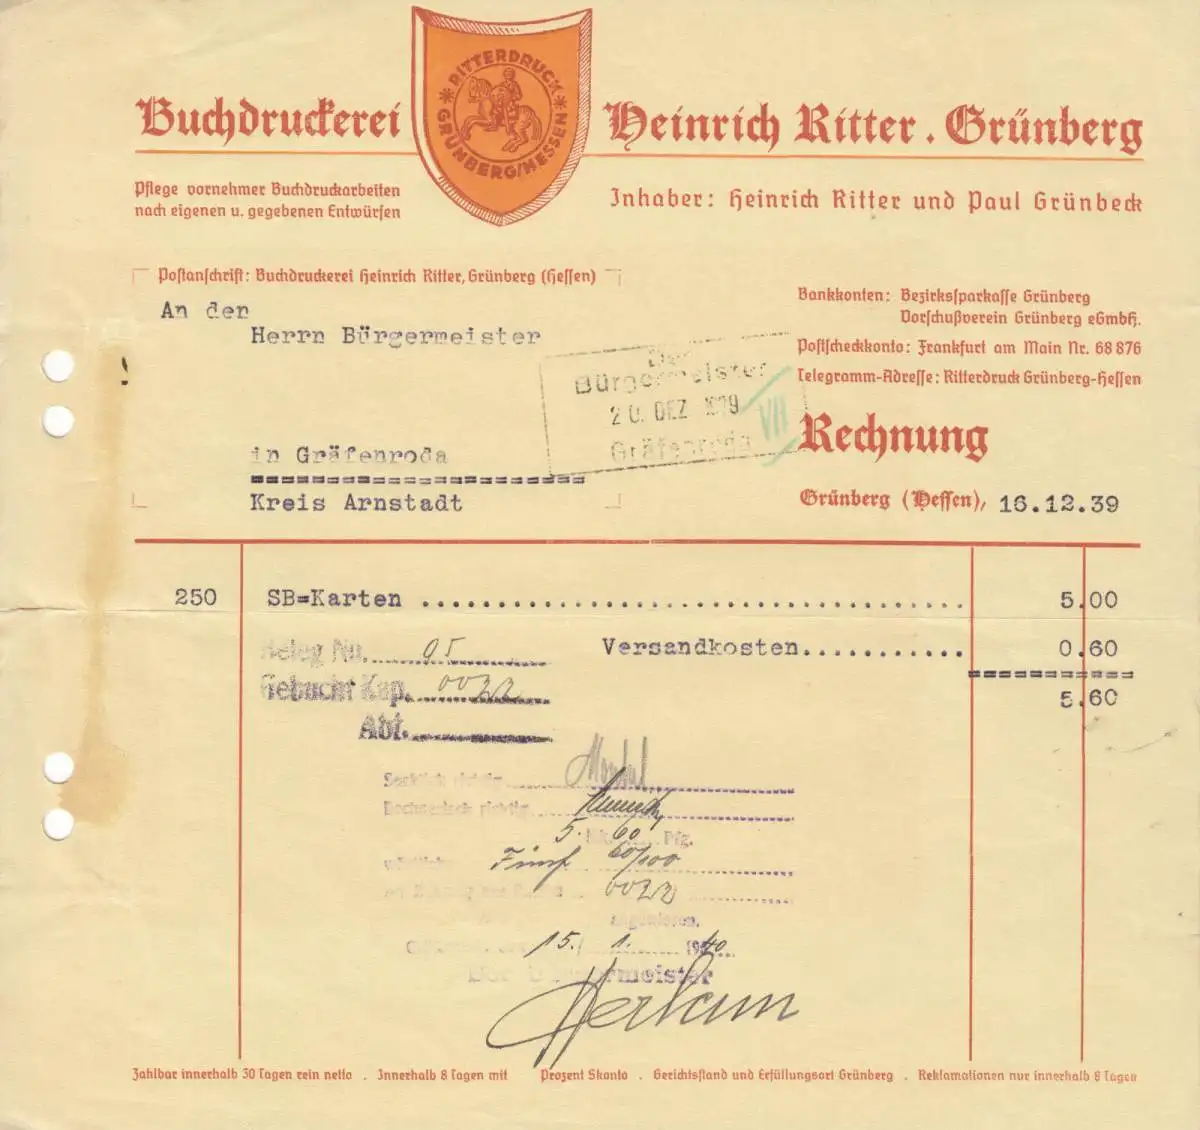 RITTERDRUCK
GRÜNBERG/HESSEN
Buchdruckerei Heinrich Ritter . Grünberg
Pflege vornehmer Buchdruckarbeiten
nach eigenen u. gegebenen Entwürfen
Inhaber: Heinrich Ritter und Paul Grünbeck
Postanschrift: Buchdruckerei Heinrich Ritter, Grünberg (Hessen)
An den
Herrn Bürgermeister
in Gräfenroda
Kreis Arnstadt
Bankkonten: Bezirkssparkasse Grünberg
Vorschußverein Grünberg eGmbH.
Postscheckkonto: Frankfurt am Main Nr. 68 876
Telegramm-Adresse: Ritterdruck Grünberg-Hessen
Der
Bürgermeister
20. DEZ 1939
Gräfenroda
VII
Rechnung
Grünberg (Hessen), 16.12.39
250 SB=Karten ........................................ 5.00
Versandkosten........... 0.60
5.60
Beleg Nr. 95
Gebucht Kap. 0022
Abt.
Sachlich richtig
Rechnerisch richtig
5. Mk. 60 Pfg.
Fünf 60/100
0022
15. 1. 1940
Der Bürgermeister
Zahlbar innerhalb 30 Tagen rein netto . Innerhalb 8 Tagen mit Prozent Skonto . Gerichtsstand und Erfüllungsort Grünberg . Reklamationen nur innerhalb 8 Tagen